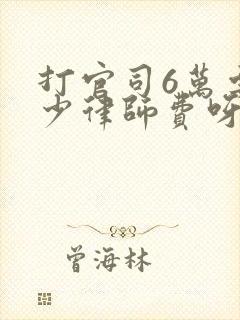 打官司6萬
少律師費呀
曾海林